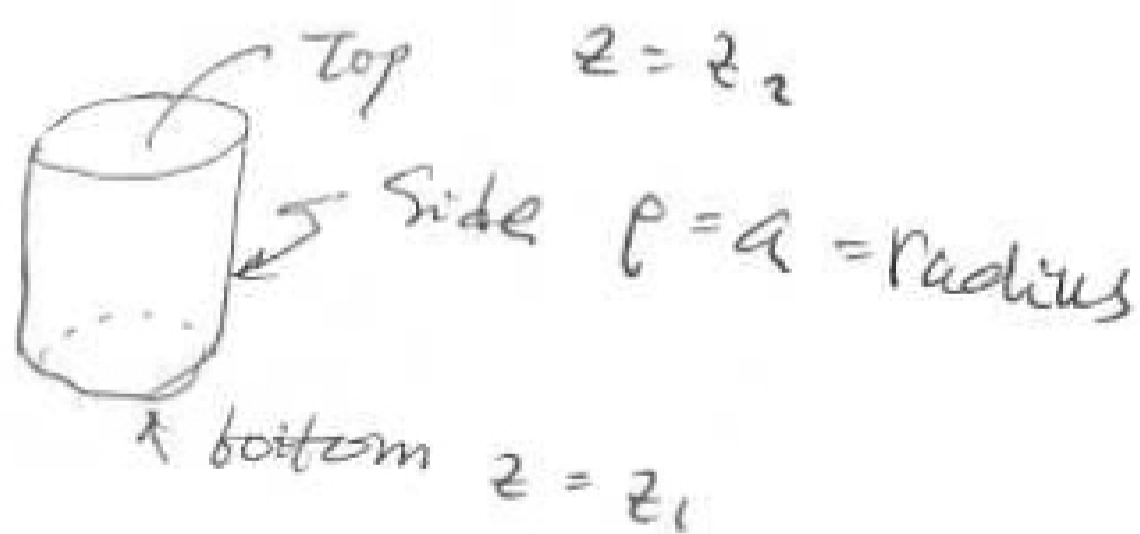 Top z = z₂
Side ρ = a = radius
bottom z = z₁